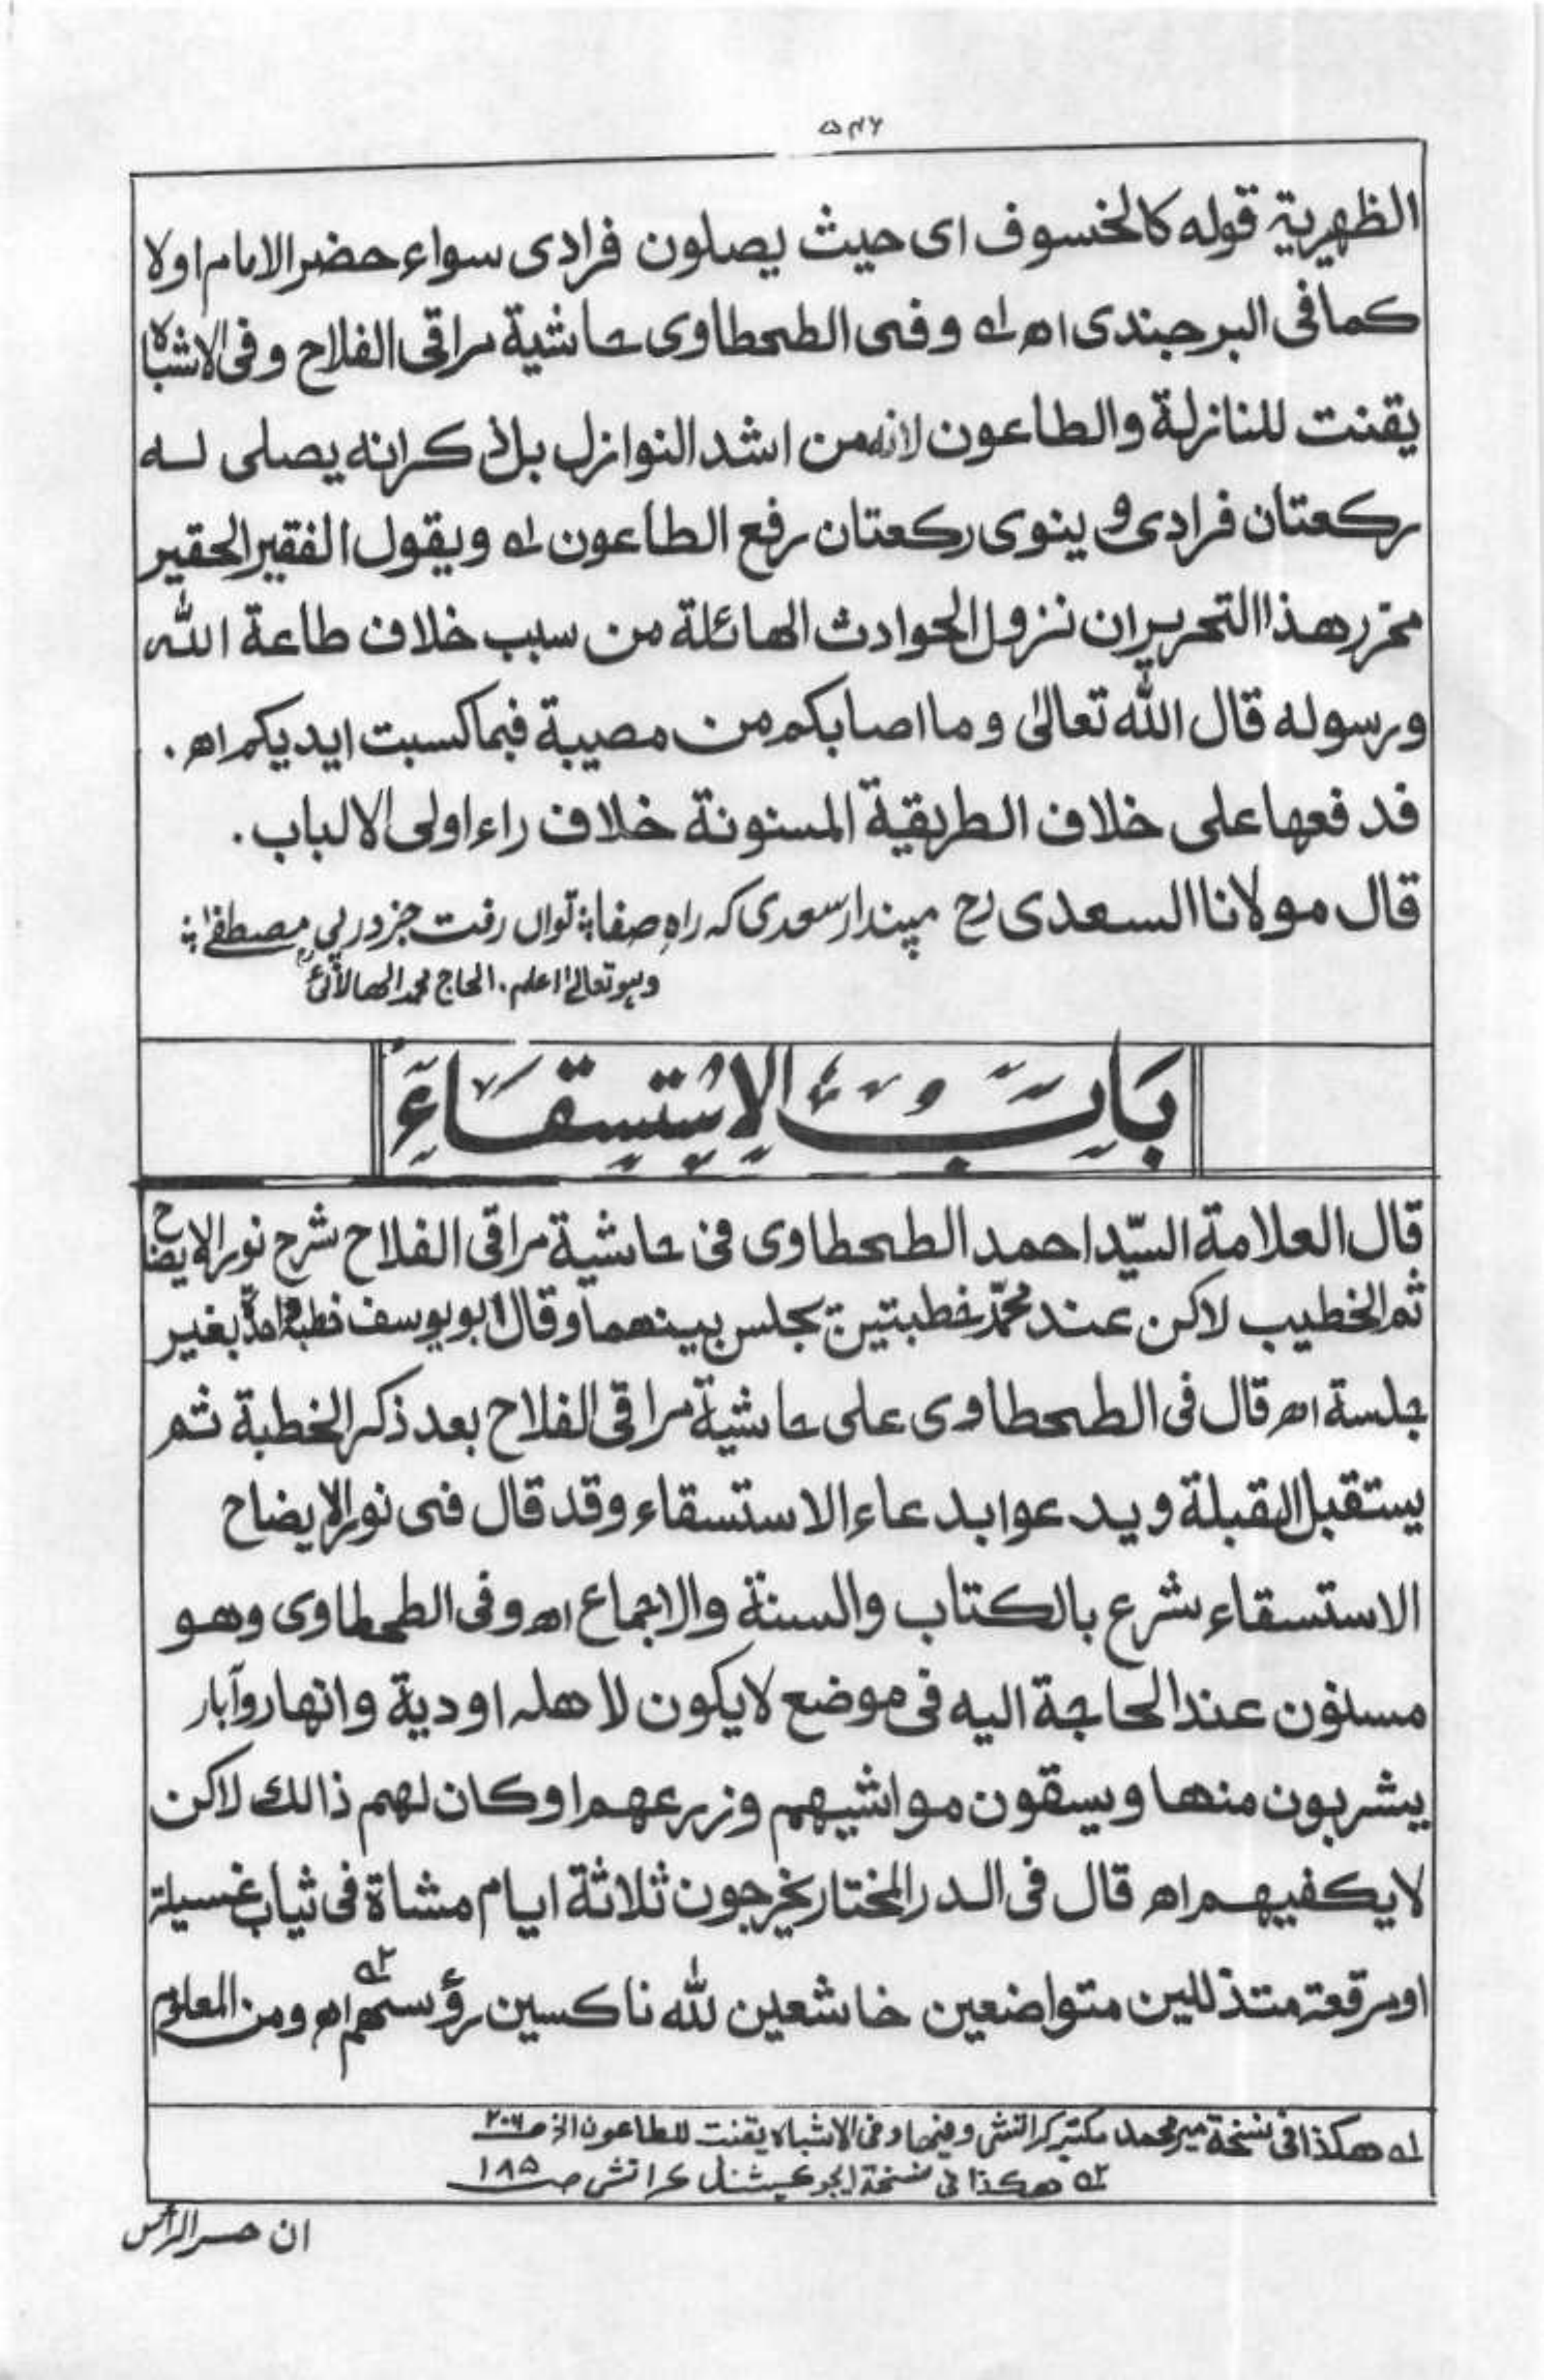 ۵۴۶
الظهيرية قوله كالخسوف اى حيث يصلون فرادى سواء حضر الامام اولا
كما فى البرجندى اه له وفى الطحطاوى حاشية مراقى الفلاح وفى الاشباه
يقنت للنازلة والطاعون لانه من اشد النوازل بل ذكر انه يصلى له
ركعتان فرادى و ينوى ركعتان رفع الطاعون له ويقول الفقير الحقير
محرر هذا التحرير ان نزول الحوادث الهائلة من سبب خلاف طاعة الله
ورسوله قال الله تعالىٰ وما اصابكم من مصيبة فبما كسبت ايديكم اه .
فدفعها على خلاف الطريقية المسنونة خلاف راء اولى الالباب .
قال مولانا السعدى رح مپندار سعدی که راهِ صفا ؞ تواں رفت جز در پی مصطفےٰ ؞
وہو تعالیٰ اعلم . الحاج محمد
بَابُ الْاِسْتِسْقَاءِ
قال العلامة السيّد احمد الطحطاوى فى حاشية مراقى الفلاح شرح نور الايضاح
ثم الخطيب لاكن عند محمّد خطبتين يجلس بينهما وقال ابو يوسف خطبة واحدة بغير
جلسة اه قال فى الطحطاوى على حاشية مراقى الفلاح بعد ذكر الخطبة ثم
يستقبل القبلة ويدعوا بدعاء الاستسقاء وقد قال فى نور الايضاح
الاستسقاء شرع بالكتاب والسنة والاجماع اه وفى الطحطاوى وهو
مسنون عند الحاجة اليه فى موضع لايكون لاهله اودية وانهار وآبار
يشربون منها ويسقون مواشيهم وزرعهم او كان لهم ذالك لاكن
لايكفيهم اه قال فى الدر المختار يخرجون ثلاثة ايام مشاة فى ثياب غسيلة
او مرقعة متذللين متواضعين خاشعين لله ناكسين رؤسهم اه ٢ه ومن المعلوم
له هكذا فى نسخة مير محمد مكتبہ كراتشى وفيها وفى الاشباه يقنت للطاعون الخ صـ ٢٠٦
٢ه هكذا فى نسخة ايجوكيشنل كراتشى صـ ١٨٥
ان حسر الرأس